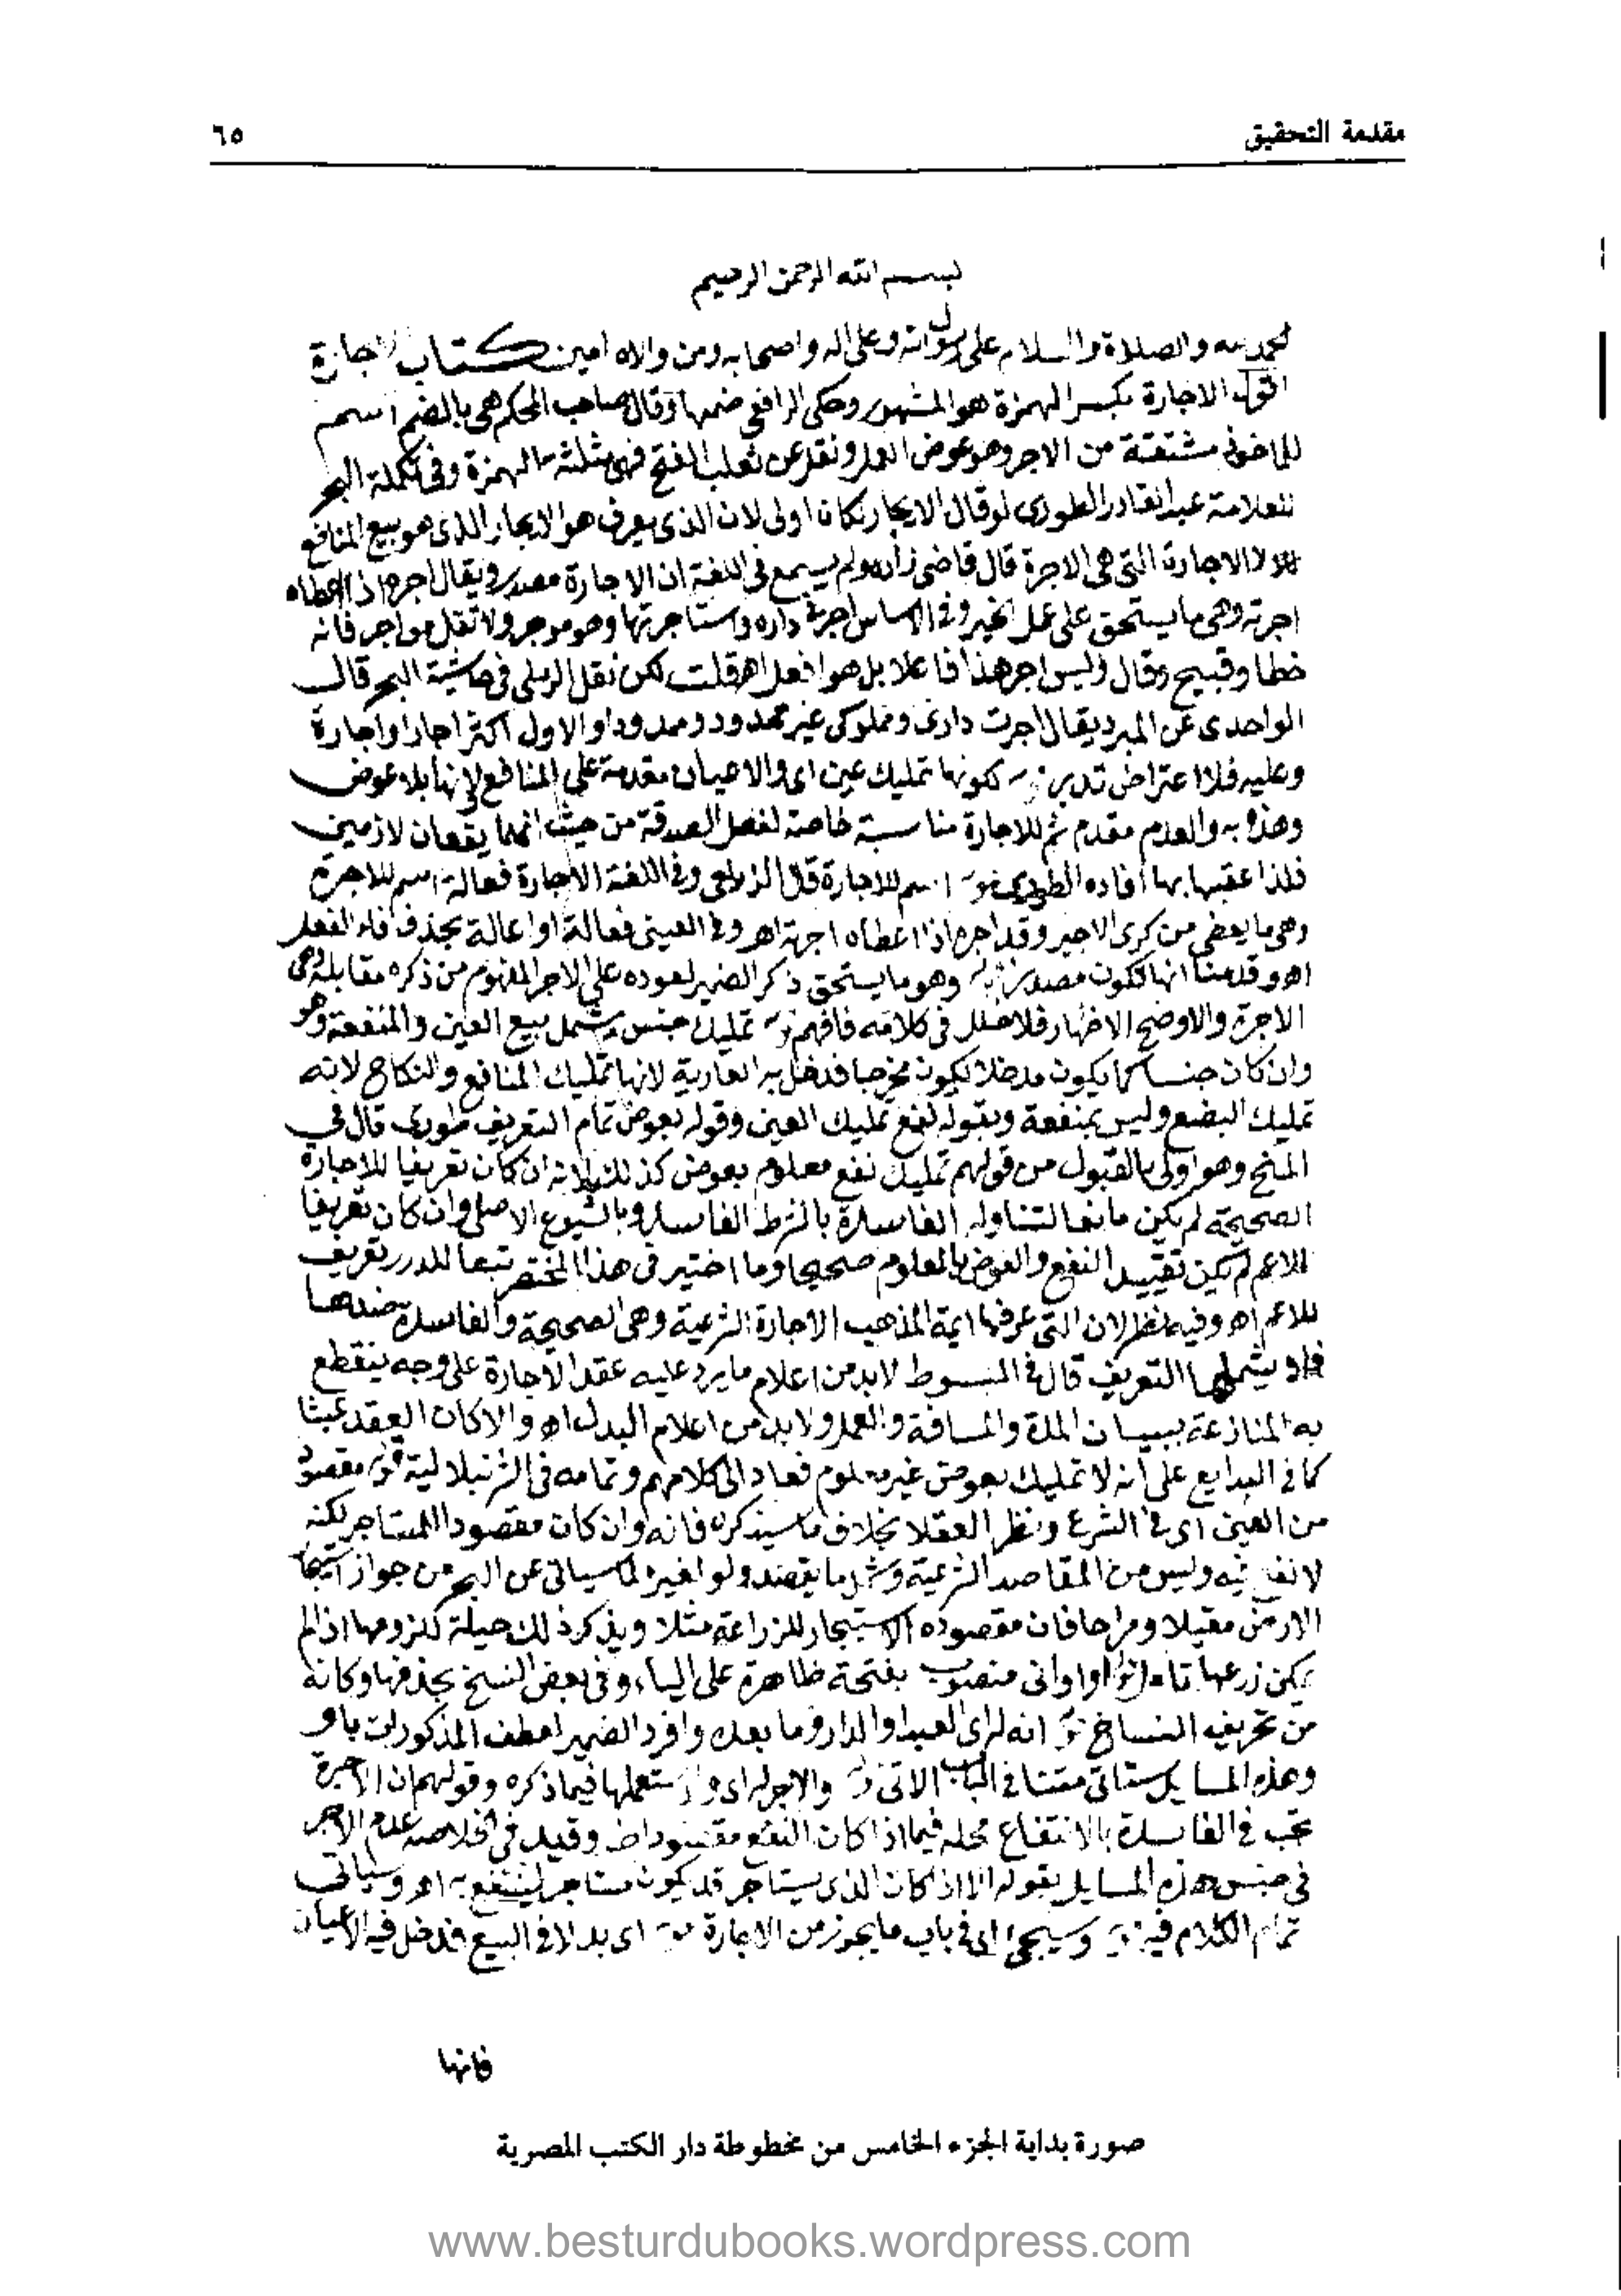 مقدمة التحقيق
٦٥
بسم الله الرحمن الرحيم
الحمد لله والصلاة والسلام على رسول الله وعلى اله واصحابه ومن والاه امين كتاب الاجارة
اقول الاجارة بكسر الهمزة هو المشهور وحكى الرافعي ضمها وقال صاحب المحكم هي بالضم اسم
للماخوذ مشتقة من الاجر وهو عوض العمل ونقل عن ثعلب الفتح فهي مثلثة الهمزة وفي تكملة البحر
للعلامة عبد القادر الطوري لو قال الايجار لكان اولى لان الذي يعرف هو الايجار الذي هو بيع المنافع
لا الاجارة التي هي الاجرة قال قاضي زاده ولم يسمع في اللغة ان الاجارة مصدر ويقال اجره اذا اعطاه
اجرته وهي ما يستحق على عمل الخير وفي الاساس اجرني داره واستاجرتها وهو موجر ولا تقل مواجر فانه
خطا وقبيح وقال وليس اجر هذا فاعلا بل هو افعل اهـ قلت لكن نقل الرملي في حاشية البحر قال
الواحدي عن المبرد يقال اجرت داري ومملوكي غير ممدود وممدودا والاول اكثر اجارا واجارة
وعليه فلا اعتراض تدبر لكونها تمليك عين اي والاعيان مقدمة على المنافع لانها بلا عوض
وهذه به والعدم مقدم ثم للاجارة مناسبة خاصة لفصل الصدقة من حيث انهما يقعان لازمين
فلذا عقبها بها افاده الطوري اسم للاجارة قال الزيلعي وفي اللغة الاجارة فعالة اسم للاجرة
وهي ما يعطى من كرى الاجير وقد اجره اذا اعطاه اجرته اهـ وفي العيني فعالة او اعالة بحذف فاء الفعل
اهـ وقدمنا انها تكون مصدرا وهو ما يستحق ذكر الضمير لعوده على الاجر المفهوم من ذكر مقابله وهي
الاجرة والاوضح الاظهار فلا خلل في كلامه فافهم تمليك جنس يشمل بيع العين والمنفعة وهو
وان كان جنسا كما يكون مدخلا يكون مخرجا فدخل به العارية لانها تمليك المنافع والنكاح لانه
تمليك البضع وليس بمنفعة وبقوله نفع تمليك العين وقوله بعوض تمام التعريف طوري قال في
المنح وهو اولى بالقبول من قولهم تمليك نفع معلوم بعوض كذلك لانه ان كان تعريفا للاجارة
الصحيحة لم يكن مانعا لتناوله الفاسدة بالشرط الفاسد وبالشيوع الاصلي وان كان تعريفا
للاعم لم يكن تقييد النفع والعوض بالمعلوم صحيحا وما اختير في هذا المختصر تبعا للدرر تعريف
للاعم اهـ وفيه نظر لان التي عرفها ايمة المذهب الاجارة الشرعية وهي الصحيحة والفاسدة ضدها
فلا يشملها التعريف قال في المبسوط لا بد من اعلام ما يرد عليه عقد الاجارة على وجه ينقطع
به المنازعة ببيان المدة والمسافة والعمل ولا بد من اعلام البدل اهـ والا كان العقد عبثا
كما في البدايع على انه لا تمليك بعوض غير معلوم فعاد الى كلامهم وتمامه في الشرنبلالية قوله مقصود
من العين اي في الشرع ونظر العقلا بخلاف ما سيذكره فانه وان كان مقصودا للمستاجر لكنه
لا نفع فيه وليس من المقاصد الشرعية وشمل ما يقصد ولو لغيره لما سياتي عن البحر من جواز استيجار
الارض مقيلا ومراحا فان مقصوده الاستيجار للزراعة مثلا ويذكر ذلك حيلة للزومها اذا لم
يكن زرعها تامل او اواني منصوب بفتحة ظاهرة على الياء وفي بعض النسخ بحذفها وكانه
من تحريف النساخ انه له اي العبد او الدار وما بعده وافرد الضمير لعطف المذكورات باو
وهذه المسايل ستاتي متنا في الباب الاتي والاجر له اي ولو استعملها فيما ذكره وقولهم ان الاجرة
تجب في الفاسدة بالانتفاع محله فيما اذا كان النفع مقصودا ط وقيد في الخلاصة عدم الاجر
في جنس هذه المسايل بقوله الا اذا كان الذي يستاجر قد يكون مستاجر لينتفع به اهـ وسياتي
تمام الكلام فيه وسيجئ اي في باب ما يجوز من الاجارة اي بدلا في البيع فدخل فيه الاعيان
فانها
صورة بداية الجزء الخامس من مخطوطة دار الكتب المصرية
www.besturdubooks.wordpress.com